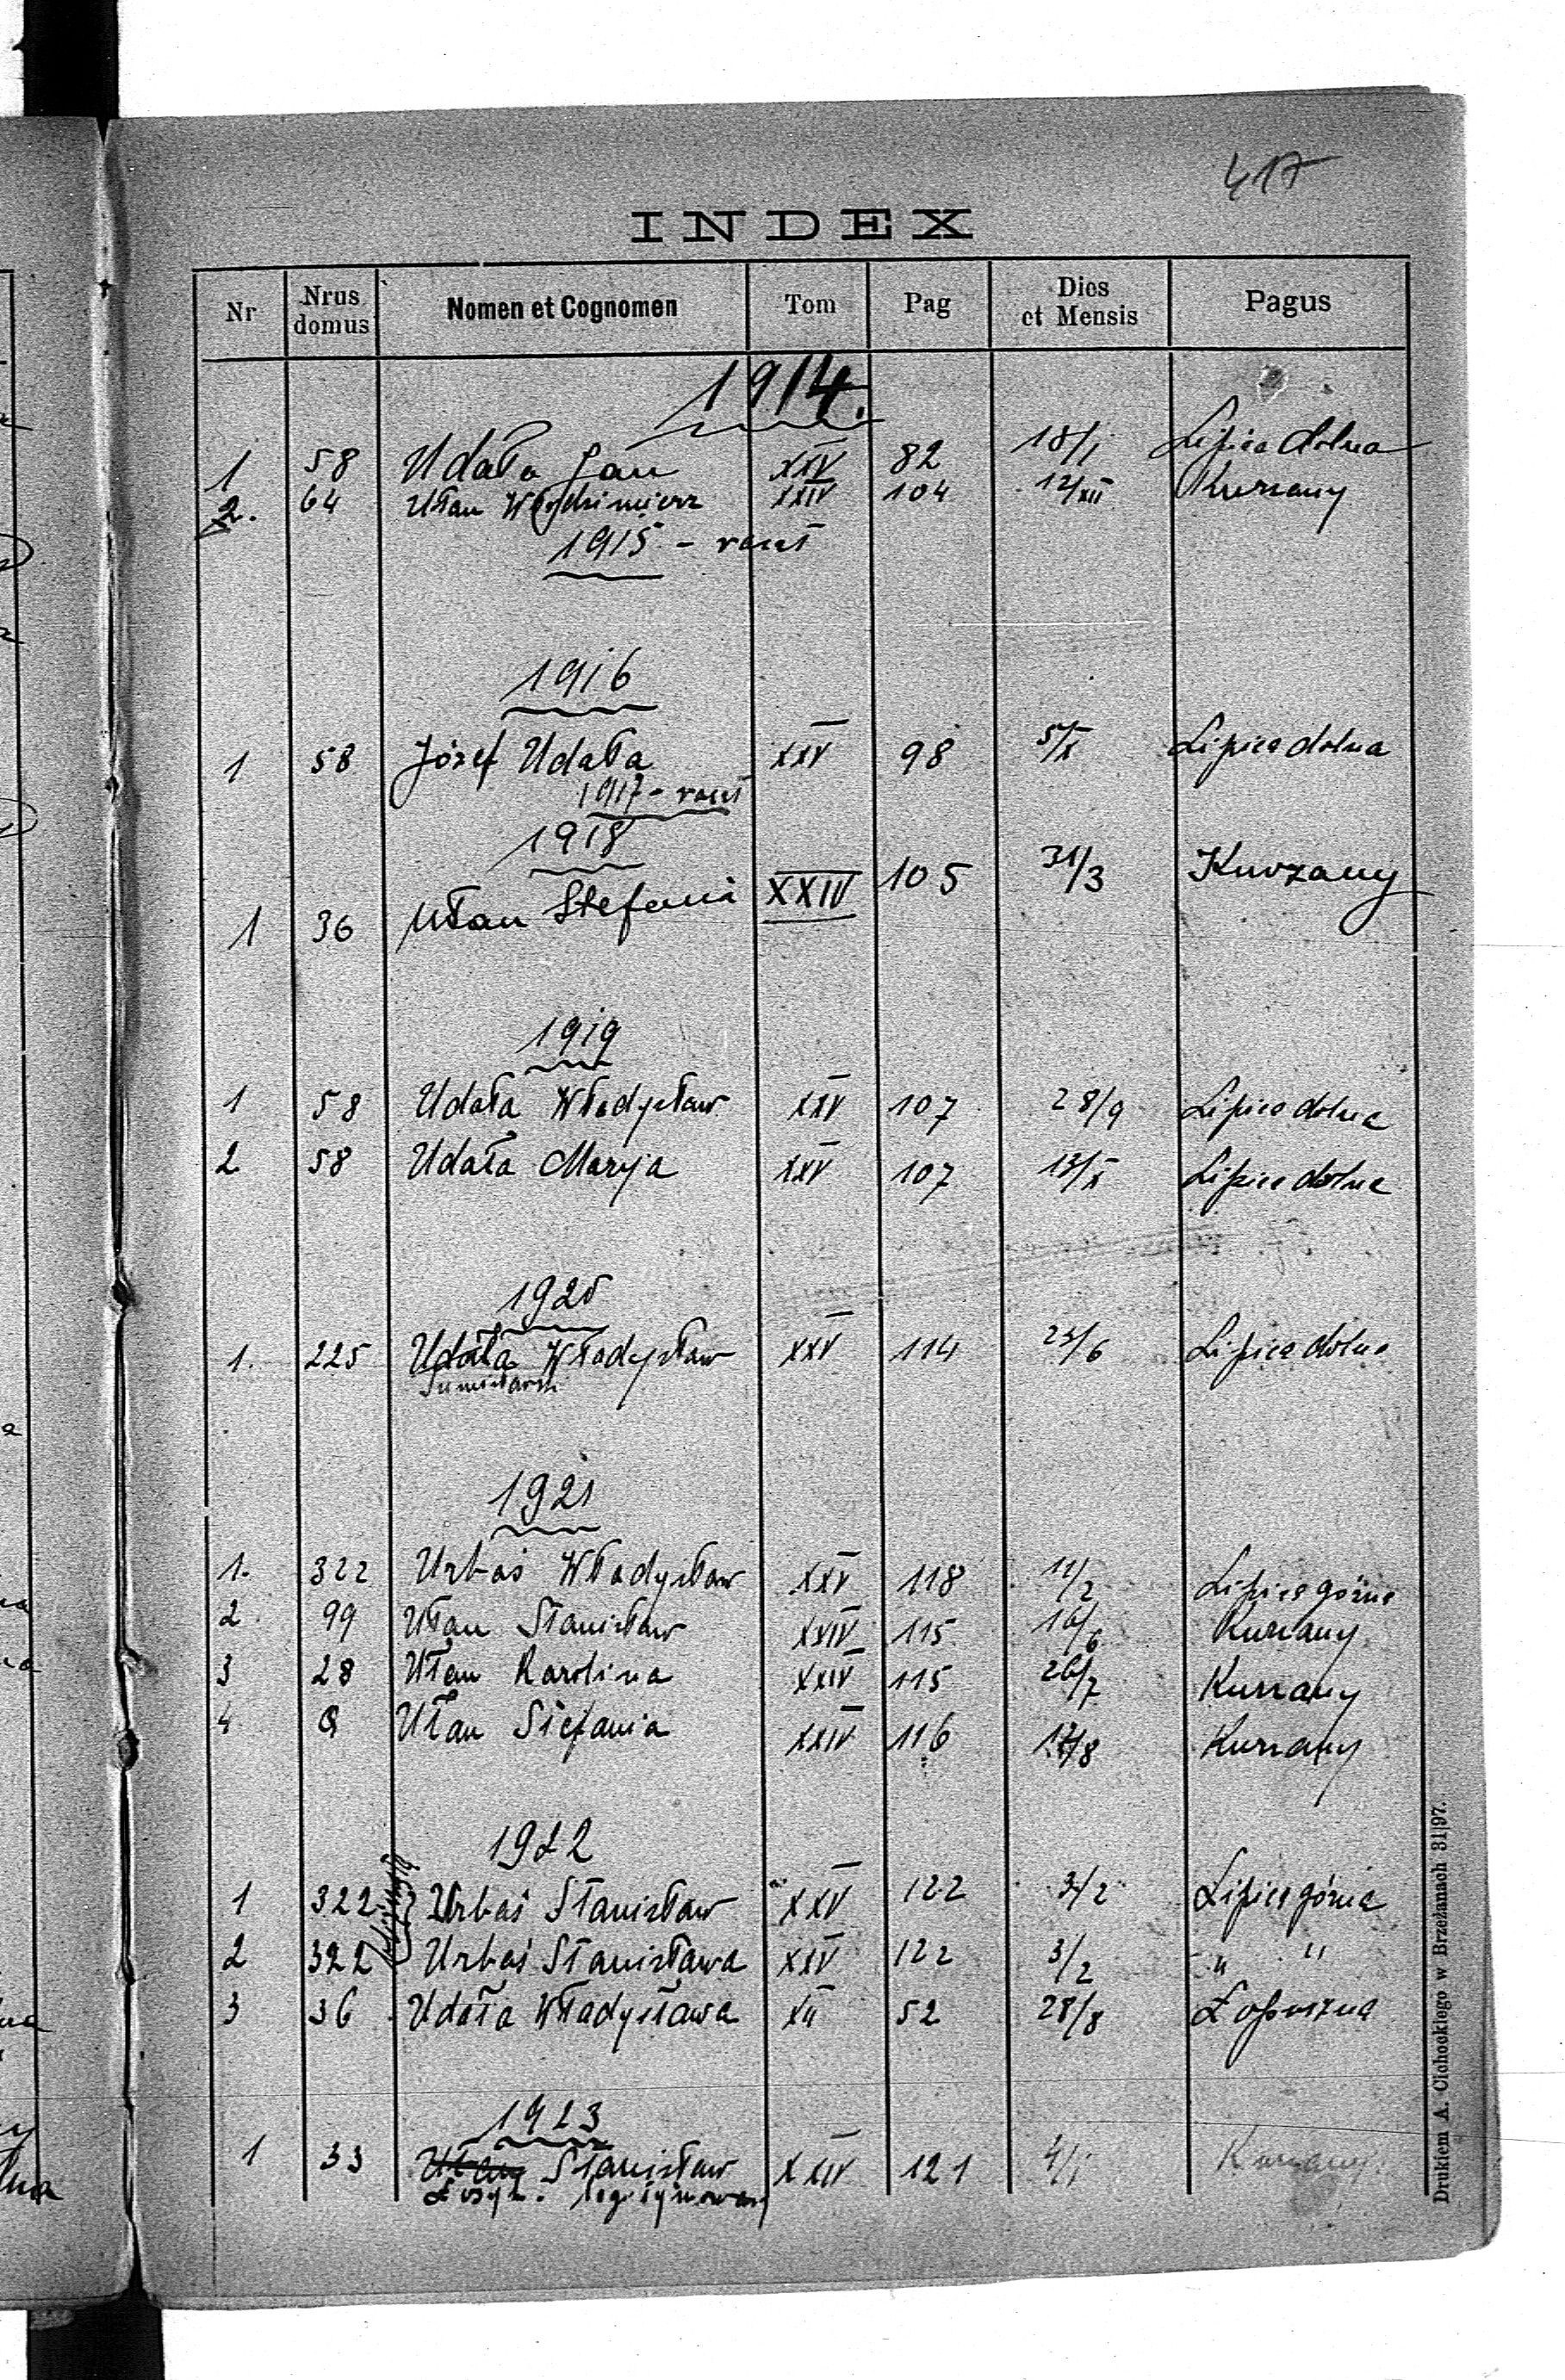 417
INDEX
Nr Nrus domus Nomen et Cognomen Tom Pag Dies et Mensis Pagus
1914.
1 58 Udała Jan XXV 82 18/I Lipica dolna
2. 64 Ułan Włodzimierz XXIV 104 12/XII Kurzany
1915 - vacat
1916
1 58 Józef Udała XXV 98 5/X Lipica dolna
1917 - vacat
1918
1 36 Ułan Stefania XXIV 105 31/3 Kurzany
1919
1 58 Udała Władysław XXV 107 28/9 Lipica dolna
2 58 Udała Marya XXV 107 13/X Lipica dolna
1920
1. 225 Udała Władysław XXV 114 23/6 Lipica dolna
1921
1. 322 Urbaś Władysław XXV 118 11/2 Lipica górna
2. 99 Ułan Stanisław XXIV 115 16/6 Kurzany
3 28 Ułan Karolina XXIV 115 26/7 Kurzany
4 Ułan Stefania XXIV 116 17/8 Kurzany
1922
1 322 Urbaś Stanisław XXV 122 3/2 Lipica górna
2 322 Urbaś Stanisława XXV 122 3/2 " "
3 36 Udała Władysława XII 52 28/8 Łopuszna
1923
1 33 Ułan Stanisław XXIV 121 4/I Kurzany
legitymowany
Drukiem A. Cichockiego w Brzeżanach 31|97.